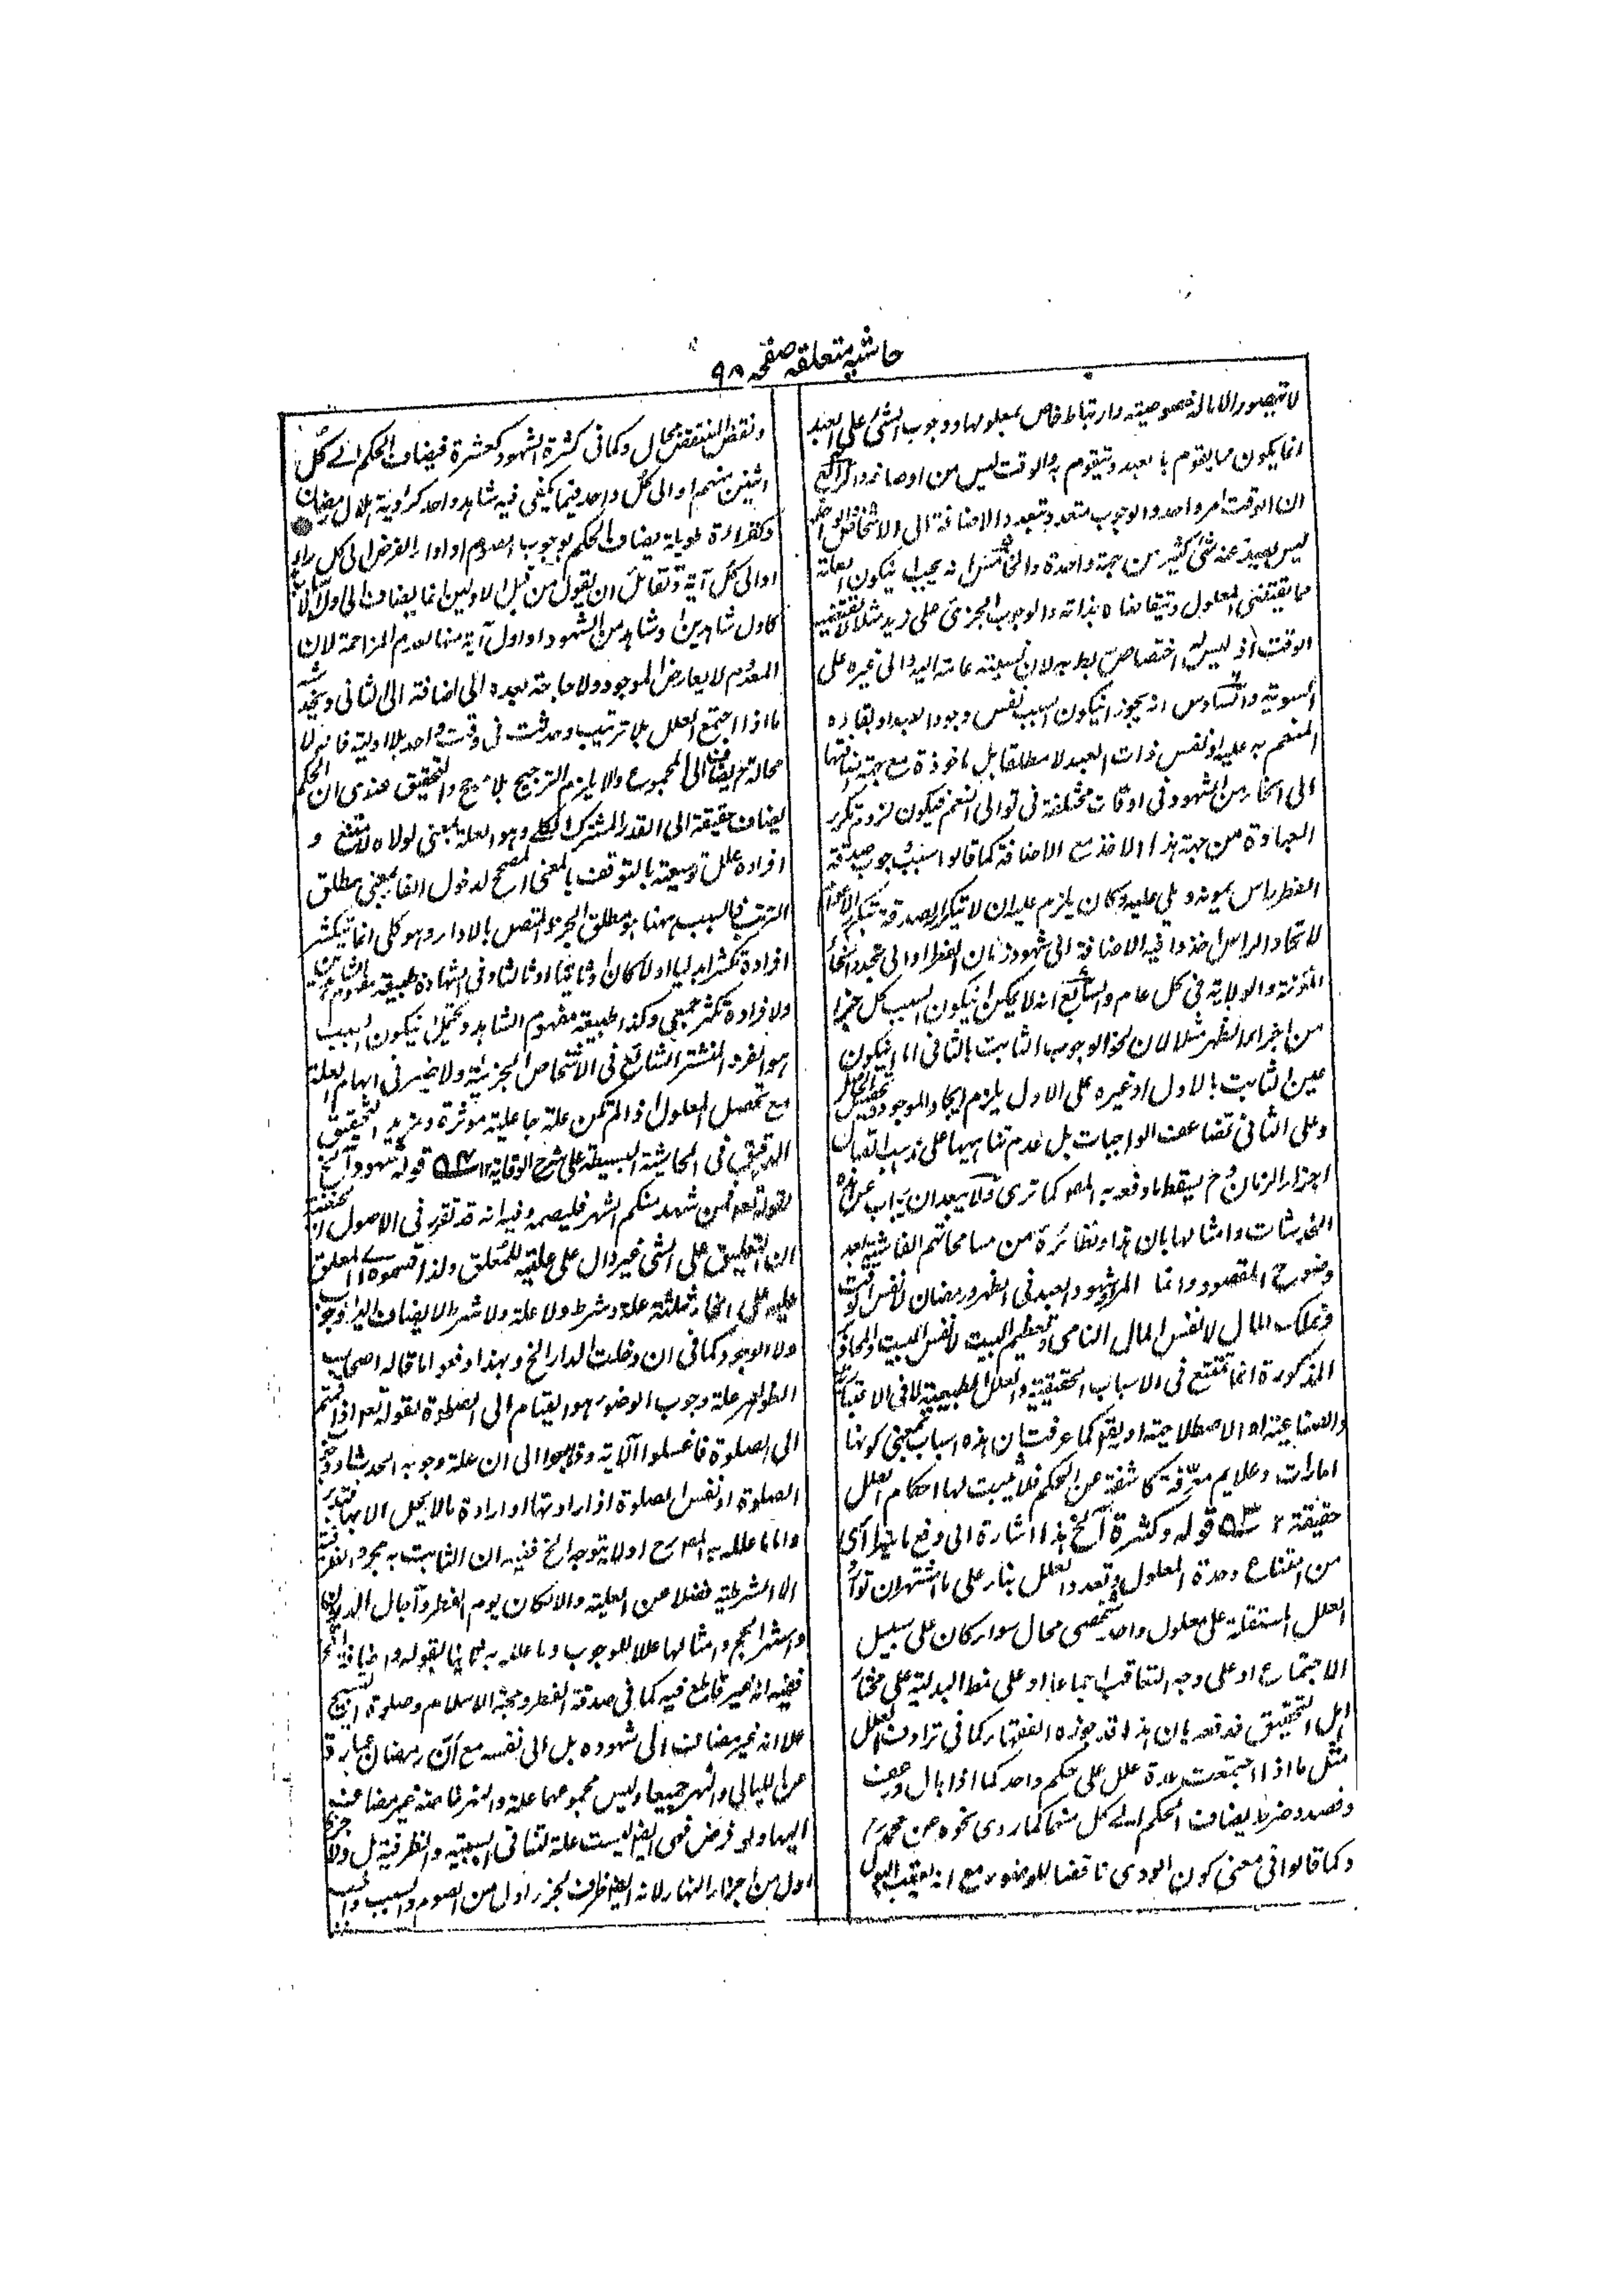 حاشیہ متعلقہ صفحہ ٩٨
لا تتصور الا بالخصوصیة وارتباط خاص بمعلولها ووجوب الشئ علی العبد
انما یکون مما یقوم بالعبد ویتقوم به والوقت لیس من اوصافه والرابع
ان الوقت امر واحد والوجوب متعدد بتعدد الاضافة الی الاشخاص والواحد
لیس یصدر عنه شئ کثیر من جهة واحدة والخامس انه یجب ان یکون العلة
مما یقتضی المعلول ویتقاضاه بذاته والوجوب الجزئی علی زید مثلا لا یقتضیه
الوقت اذ لیس له اختصاص بطبعه لان نسبته عامة الیه والی غیره علی
السویة والسادس انه یجوز ان یکون السبب نفس وجود العبد او بقاءه
المنعم به علیه او نفس ذات العبد لا مطلقا بل ماخوذة مع جهة اضافتها
الی انحاء من الشهود فی اوقات مختلفة فی توالی النعم فیکون لزوم تکرر
العبادة من جهة هذا الاخذ مع الاضافة کما قالوا سبب وجوب صدقة
الفطر راس یمونه ویلی علیه وکان یلزم علیه ان لا تتکرر الصدقة بتکرر الاعوام
لاتحاد الراس اخذوا فیه الاضافة الی شهود زمان الفطر او الی تجدد انحاء
المؤنة والولایة فی کل عام والسابع انه لا یمکن ان یکون السبب کل جزء
من اجزاء الظهر مثلا لان نحو الوجوب الثابت بالثانی اما ان یکون
عین الثابت بالاول او غیره علی الاول یلزم ایجاد الموجود وتحصیل الحاصل
وعلی الثانی تضاعف الواجبات بل عدم تناهیها علی مذهب اتصال
اجزاء الزمان وح یسقط ما دفعه به المص کما تری ولا یبعد ان یجاب عن هذه
الخدشات وامثالها بان هذا ونظائره من مسامحاتهم الفاشیة بعد
وضوح المقصود وانما المراد شهود العبد فی الظهر ورمضان لا نفس الوقت
وتملک المال لا نفس المال النامی وتعظیم البیت لا نفس البیت والمحاذیر
المذکورة انما تمتنع فی الاسباب الحقیقیة والعلل الطبیعیة لا فی الاعتباریة
والصناعیة او الاصطلاحیة او یقال کما عرفت بان هذه اسباب بمعنی کونها
امارات وعلایم معرفة کاشفة عن الحکم فلا یثبت لها احکام العلل
حقیقة ١٢ قوله وکثرة آلخ هذا اشارة الی دفع ما یتراأی
من امتناع وحدة المعلول وتعدد العلل بناء علی ما اشتهر ان توارد
العلل المستقلة علی معلول واحد شخصی محال سواء کان علی سبیل
الاجتماع او علی وجه التعاقب اجماعا او علی نمط البدلیة علی مختار
اهل التحقیق فدفعه بان هذا قد جوزه الفقهاء کما فی ترادف العلل
مثل ما اذا اجتمعت عدة علل علی حکم واحد کما اذا بال ورعف
وفصد وضرط یضاف الحکم الی کل منها کما روی نحوه عن محمد رح
وکما قالوا فی معنی کون الودی ناقضا للوضوء مع انه یعقب البول
ونقض المنتقض محال وکما فی کثرة الشهود کعشرة فیضاف الحکم الی کل
اثنین منهم او الی کل واحد فیما یکفی فیه شاهد واحد کرؤیة هلال رمضان
وکقراءة طویلة یضاف الحکم بوجوب الصوم او اداء الفرض الی کل راء
او الی کل آیة ولقائل ان یقول من قبل الاولین انما یضاف الی اول الثلاثة
کاول شاهدین او شاهد من الشهود او اول آیة منها لعدم المزاحمة لان
المعدوم لا یعارض الموجود ولا حاجة بعده الی اضافة الی الثانی ویخدشه
ما اذا اجتمع العلل بلا ترتیب وحدثت فی وقت واحد بلا اولیة فانه لا
محالة ح یضاف الی المجموع والا یلزم الترجیح بلا مرجح والتحقیق عندی ان الحکم
یضاف حقیقة الی القدر المشترک الکلی وهو العلة بمعنی لولاه لامتنع و
افراده علل توسیعة بالتوقف بالمعنی المصحح لدخول الفاء بمعنی مطلق
الترتب فالسبب ههنا هو مطلق الجزء المتصل بالاداء وهو کلی انما یتکثر
افراده تکثرا بدلیا اولا کان او ثانیا او ثالثا وفی الشهادة طبیعة مفهوم الشاهدین
ولافراده تکثر جمعی وکذا طبیعة مفهوم الشاهد ویحتمل ان یکون السبب
هو الفرد المنتشر الشائع فی الاشخاص الجزئیة ولا ضیر فی ابهام العلة
مع تحصل المعلول اذ المتکن علة جاعلیة موثرة ومزید التحقیق
الدقیق فی الحاشیة البسیطة علی شرح الوقایة ١٢ قوله شهود آلخ
لقوله تعه فمن شهد منکم الشهر فلیصمه وفیه انه قد تقرر فی الاصول الحنفیة
ان التعلیق علی الشئ غیر دال علی علیته للمعلق ولذا قسموه ای المعلق
علیه علی انحاء ثلثة علة وشرط ولا علة ولا شرط لا یضاف الیه الوجوب
ولا الوجود کما فی ان دخلت الدار الخ وبهذا دفعوا ما قاله اصحاب
الظواهر علة وجوب الوضوء هو القیام الی الصلوة بقوله تعه اذا قمتم
الی الصلوة فاغسلوا الآیة وذهبوا الی ان علة وجوبه الحدث او وجوب
الصلوة او نفس الصلوة او ارادتها او ارادة ما لا یحل الا بها فتدبر
واما ما علله به المص رح اولا بتوجه الخ ففیه ان الثابت به مجرد الظرفیة
الا الشرطیة فضلا عن العلیة والا لکان یوم الفطر وآجال الدیون
واشهر الحج وامثالها عللا للوجوب وما علله به ثانیا بقوله واضافته الخ
ففیه انه غیر قاطع فیه کما فی صدقة الفطر وحجة الاسلام وصلوة التسبیح
علا انه غیر مضاف الی شهوده بل الی نفسه مع ان رمضان عبارة
عن اللیالی والنهر جمیعا ولیس مجموعهما علة والنهر خاصة غیر مضاف
الیها ولو فرض فهی ایضا لیست علة لتنافی السببیة والظرفیة بل ولا جزء
اول من اجزاء النهار لانه ایضا ظرف لجزء اول من الصوم والسبب واجب